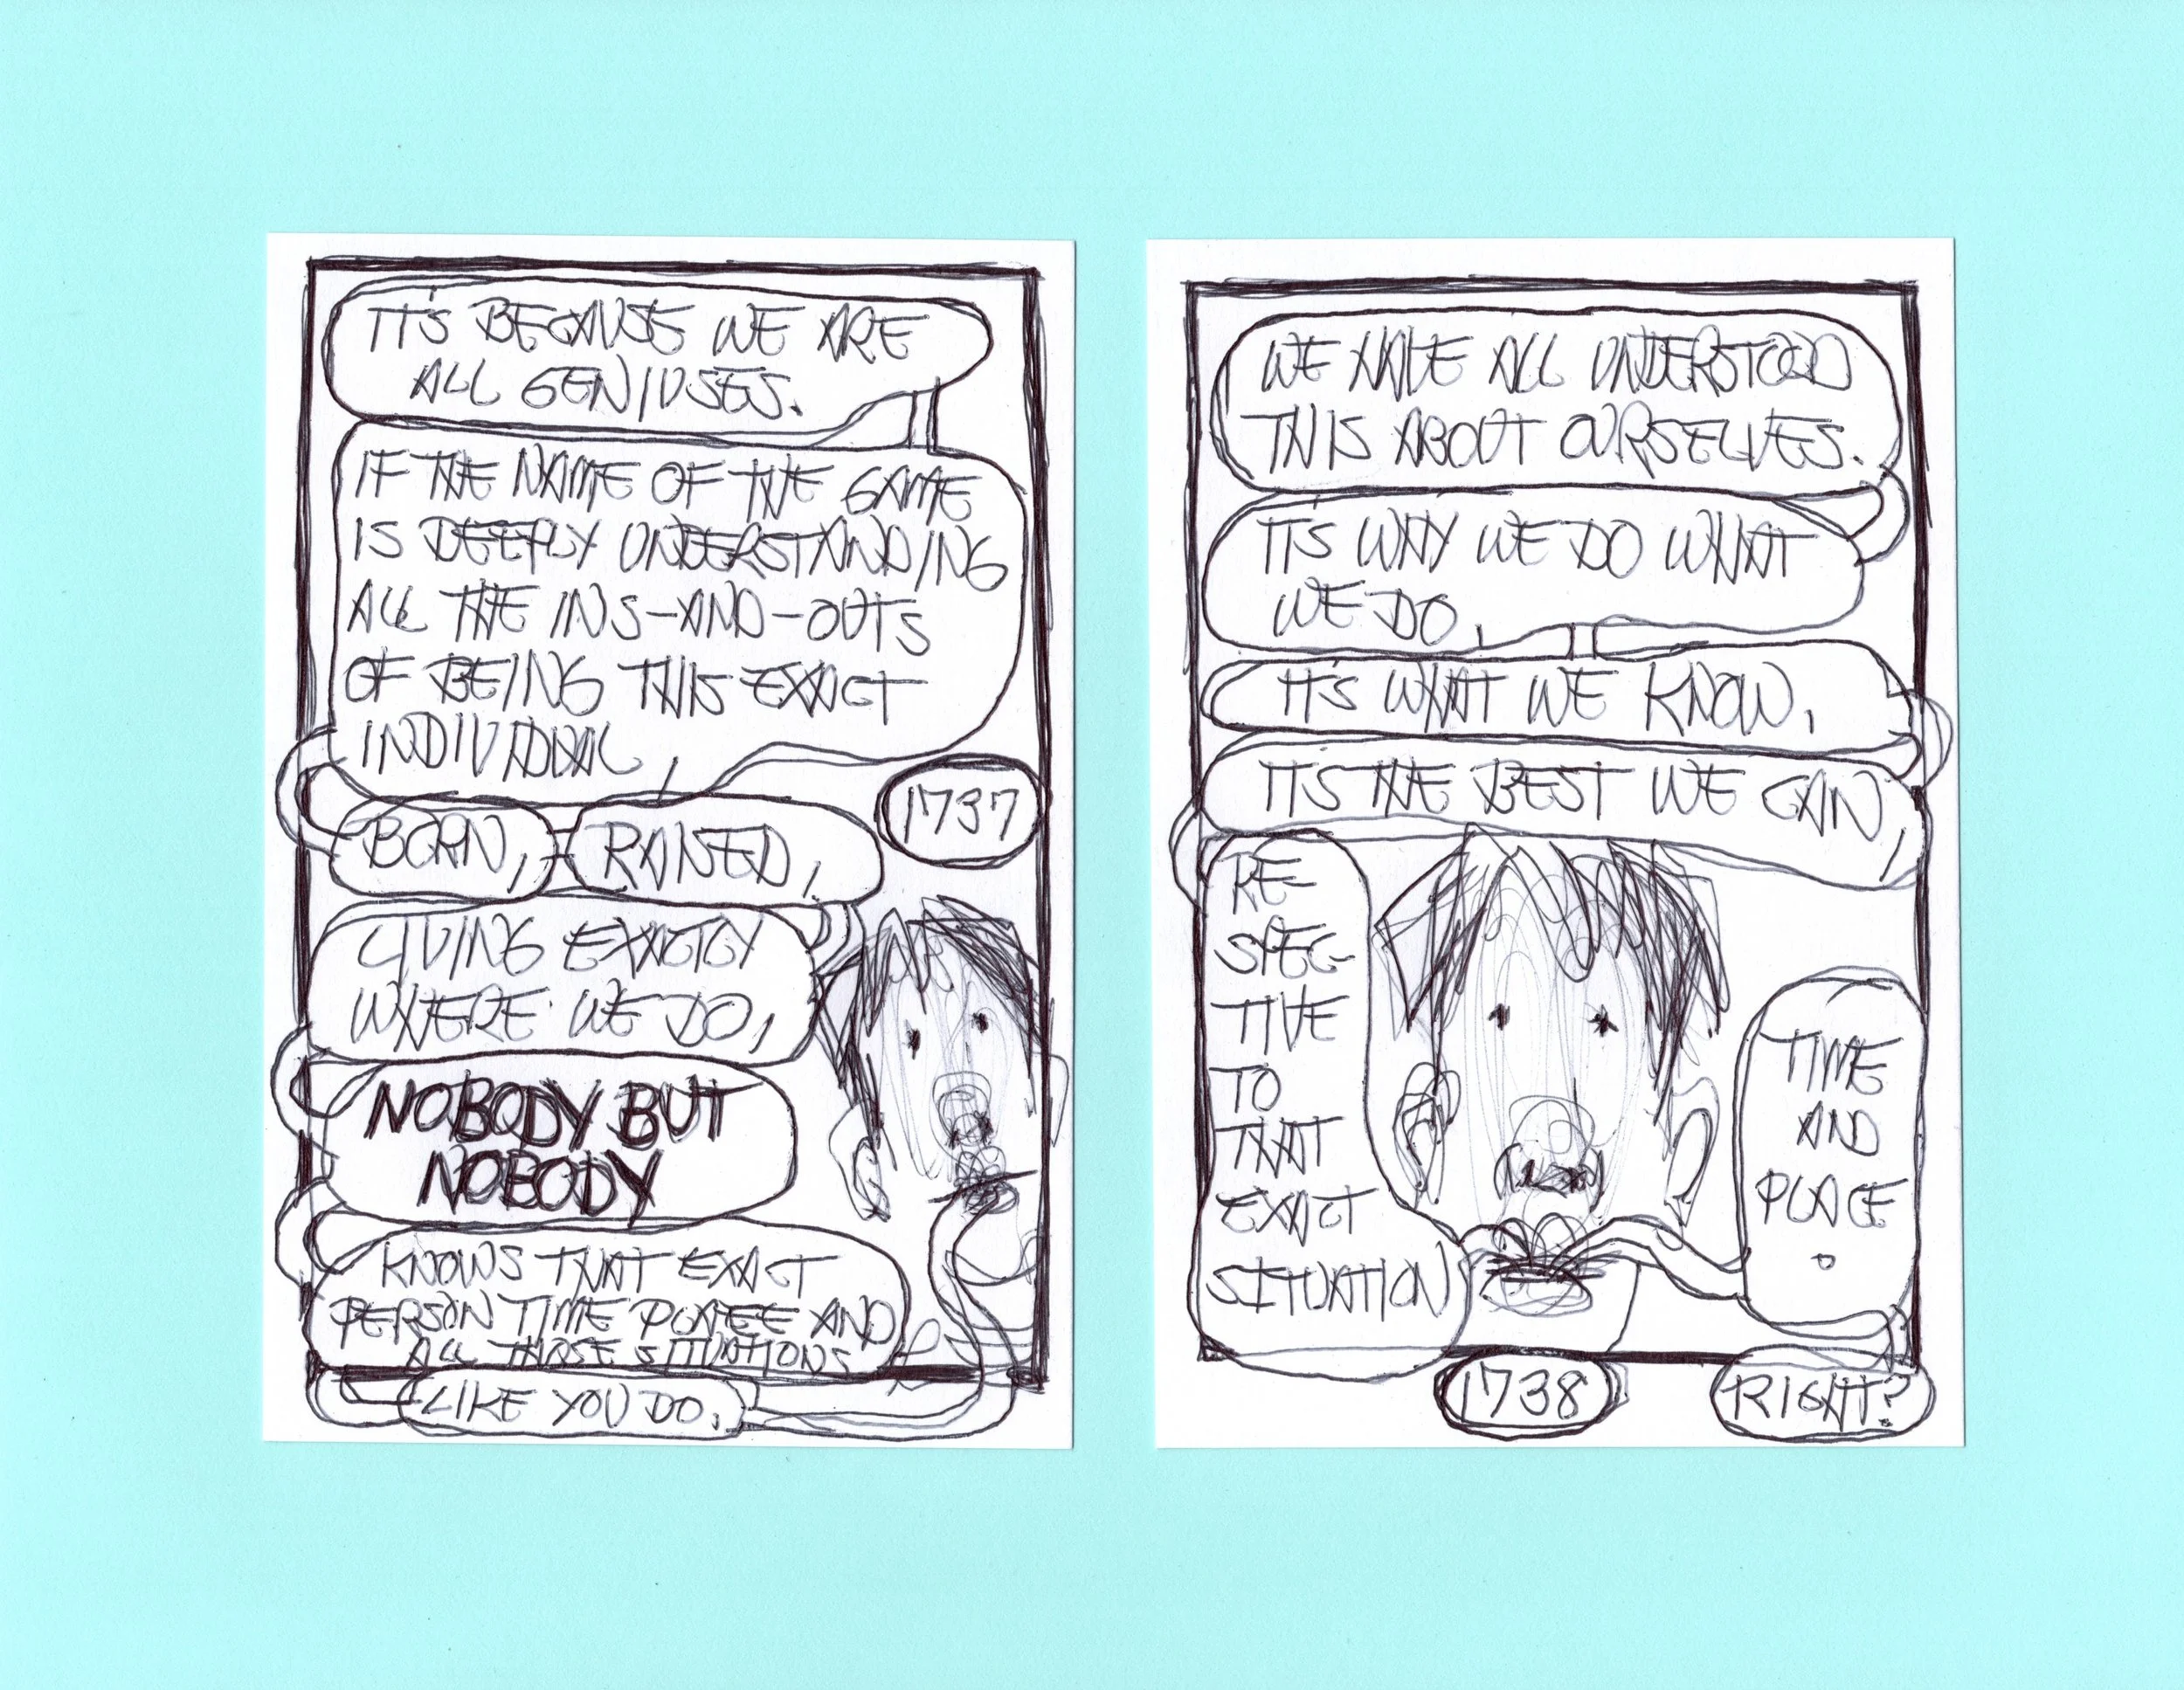 IT'S BECAUSE WE ARE
ALL GENIUSES.
IF THE NAME OF THE GAME
IS DEEPLY UNDERSTANDING
ALL THE INS-AND-OUTS
OF BEING THIS EXACT
INDIVIDUAL,
1737
BORN,
RAISED,
LIVING EXACTLY
WHERE WE DO,
NOBODY BUT
NOBODY
KNOWS THAT EXACT
PERSON TIME PLACE AND
ALL THOSE SITUATIONS
LIKE YOU DO.
WE HAVE ALL UNDERSTOOD
THIS ABOUT OURSELVES.
IT'S WHY WE DO WHAT
WE DO,
IT'S WHAT WE KNOW,
ITS THE BEST WE CAN,
RE-
SPEC-
TIVE
TO
THAT
EXACT
SITUATION
TIME
AND
PLACE
.
1738
RIGHT?